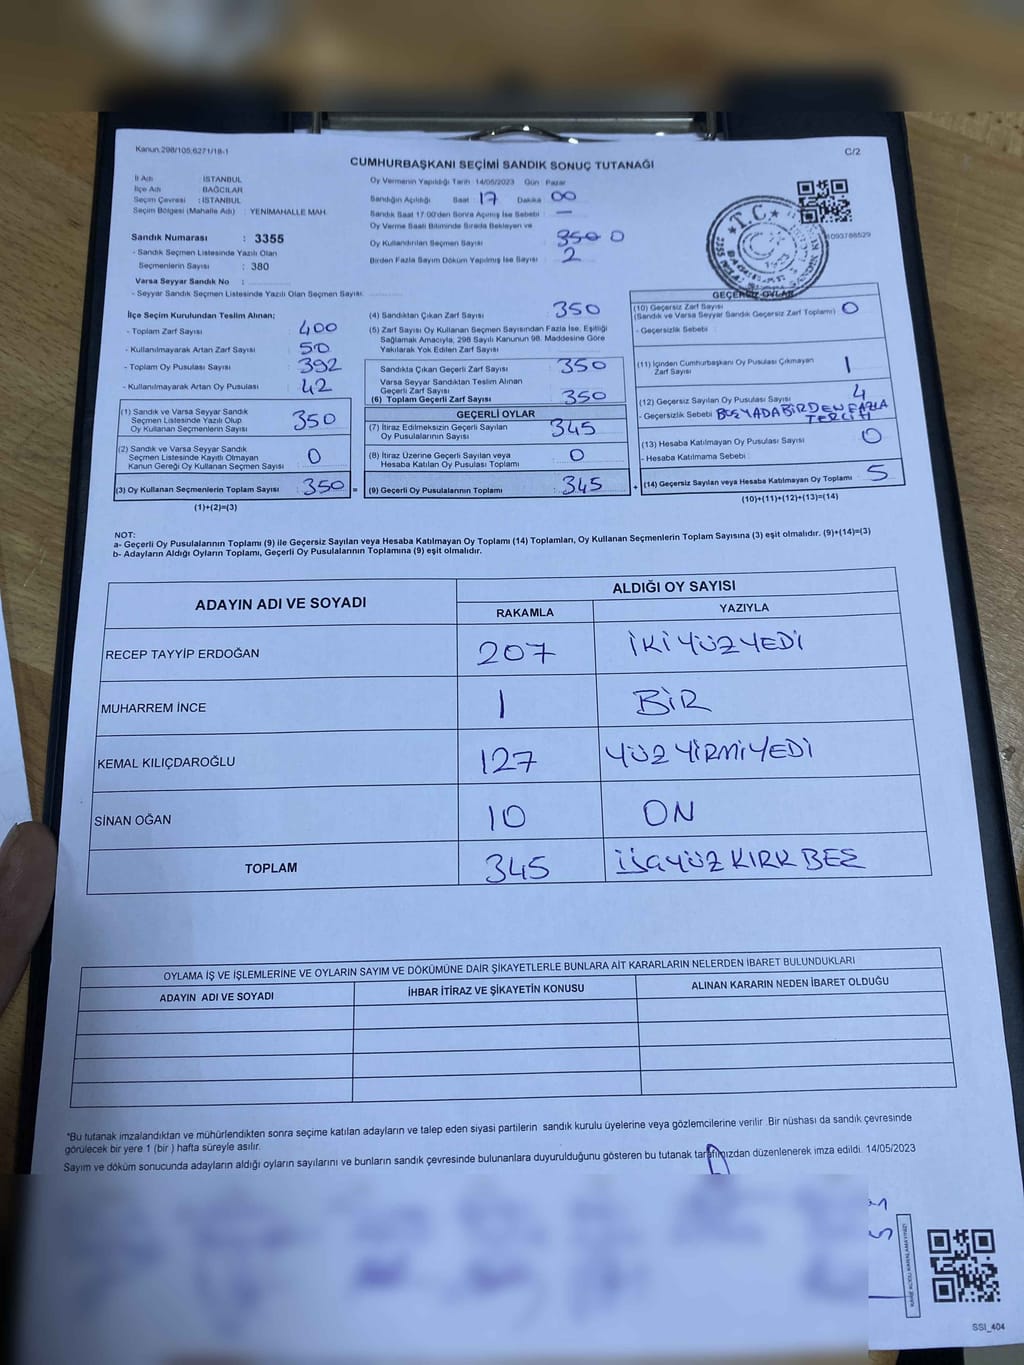 Kanun.298/105,6271/18-1
C/2
CUMHURBAŞKANI SEÇİMİ SANDIK SONUÇ TUTANAĞI
İl Adı : İSTANBUL
İlçe Adı : BAĞCILAR
Seçim Çevresi : İSTANBUL
Seçim Bölgesi (Mahalle Adı) : YENİMAHALLE MAH.
Sandık Numarası : 3355
- Sandık Seçmen Listesinde Yazılı Olan
Seçmenlerin Sayısı : 380
Varsa Seyyar Sandık No :
- Seyyar Sandık Seçmen Listesinde Yazılı Olan Seçmen Sayısı:
Oy Vermenin Yapıldığı Tarih :14/05/2023 Gün : Pazar
Sandığın Açıldığı Saat 17 Dakika 00
Sandık Saat 17:00'den Sonra Açılmış İse Sebebi : —
Oy Verme Saati Bitiminde Sırada Bekleyen ve
Oy Kullandırılan Seçmen Sayısı : 350 0
Birden Fazla Sayım Döküm Yapılmış İse Sayısı : 2
T.C.
1093786529
İlçe Seçim Kurulundan Teslim Alınan;
- Toplam Zarf Sayısı : 400
- Kullanılmayarak Artan Zarf Sayısı : 50
- Toplam Oy Pusulası Sayısı : 392
- Kullanılmayarak Artan Oy Pusulası : 42
(1) Sandık ve Varsa Seyyar Sandık
Seçmen Listesinde Yazılı Olup
Oy Kullanan Seçmenlerin Sayısı : 350
(2) Sandık ve Varsa Seyyar Sandık
Seçmen Listesinde Kayıtlı Olmayan
Kanun Gereği Oy Kullanan Seçmen Sayısı : 0
(3) Oy Kullanan Seçmenlerin Toplam Sayısı : 350 =
(1)+(2)=(3)
(4) Sandıktan Çıkan Zarf Sayısı : 350
(5) Zarf Sayısı Oy Kullanan Seçmen Sayısından Fazla İse, Eşitliği
Sağlamak Amacıyla, 298 Sayılı Kanunun 98. Maddesine Göre
Yakılarak Yok Edilen Zarf Sayısı
Sandıkta Çıkan Geçerli Zarf Sayısı : 350
Varsa Seyyar Sandıktan Teslim Alınan
Geçerli Zarf Sayısı
(6) Toplam Geçerli Zarf Sayısı : 350
GEÇERLİ OYLAR
(7) İtiraz Edilmeksizin Geçerli Sayılan
Oy Pusulalarının Sayısı : 345
(8) İtiraz Üzerine Geçerli Sayılan veya
Hesaba Katılan Oy Pusulası Toplamı : 0
(9) Geçerli Oy Pusulalarının Toplamı : 345 +
GEÇERSİZ OYLAR
(10) Geçersiz Zarf Sayısı
(Sandık ve Varsa Seyyar Sandık Geçersiz Zarf Toplamı) : 0
- Geçersizlik Sebebi :
(11) İçinden Cumhurbaşkanı Oy Pusulası Çıkmayan
Zarf Sayısı : 1
(12) Geçersiz Sayılan Oy Pusulası Sayısı : 4
- Geçersizlik Sebebi : BOŞ YADA BİRDEN FAZLA
TERCİH
(13) Hesaba Katılmayan Oy Pusulası Sayısı : 0
- Hesaba Katılmama Sebebi :
(14) Geçersiz Sayılan veya Hesaba Katılmayan Oy Toplamı : 5
(10)+(11)+(12)+(13)=(14)
NOT:
a- Geçerli Oy Pusulalarının Toplamı (9) ile Geçersiz Sayılan veya Hesaba Katılmayan Oy Toplamı (14) Toplamları, Oy Kullanan Seçmenlerin Toplam Sayısına (3) eşit olmalıdır. (9)+(14)=(3)
b- Adayların Aldığı Oyların Toplamı, Geçerli Oy Pusulalarının Toplamına (9) eşit olmalıdır.
ADAYIN ADI VE SOYADI
ALDIĞI OY SAYISI
RAKAMLA YAZIYLA
RECEP TAYYİP ERDOĞAN 207 İKİ YÜZ YEDİ
MUHARREM İNCE 1 BİR
KEMAL KILIÇDAROĞLU 127 YÜZ YİRMİ YEDİ
SİNAN OĞAN 10 ON
TOPLAM 345 ÜÇ YÜZ KIRK BEŞ
OYLAMA İŞ VE İŞLEMLERİNE VE OYLARIN SAYIM VE DÖKÜMÜNE DAİR ŞİKAYETLERLE BUNLARA AİT KARARLARIN NELERDEN İBARET BULUNDUKLARI
ADAYIN ADI VE SOYADI İHBAR İTİRAZ VE ŞİKAYETİN KONUSU ALINAN KARARIN NEDEN İBARET OLDUĞU
*Bu tutanak imzalandıktan ve mühürlendikten sonra seçime katılan adayların ve talep eden siyasi partilerin sandık kurulu üyelerine veya gözlemcilerine verilir. Bir nüshası da sandık çevresinde
görülecek bir yere 1 (bir ) hafta süreyle asılır.
Sayım ve döküm sonucunda adayların aldığı oyların sayılarını ve bunların sandık çevresinde bulunanlara duyurulduğunu gösteren bu tutanak tarafımızdan düzenlenerek imza edildi. 14/05/2023
SSI_404